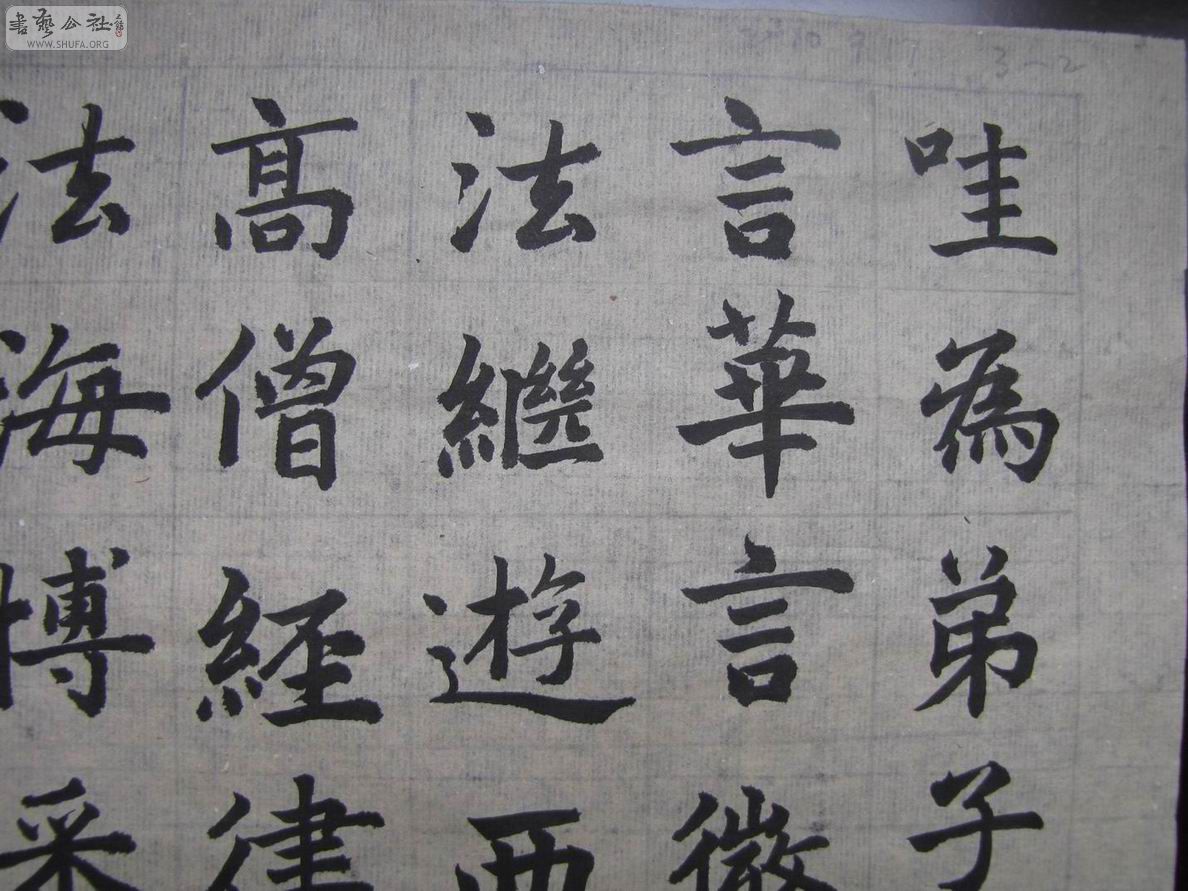 哇為弟子
言華言微
法繼遊西
高僧經律
法海博采
書藝公社
WWW.SHUFA.ORG
3-2